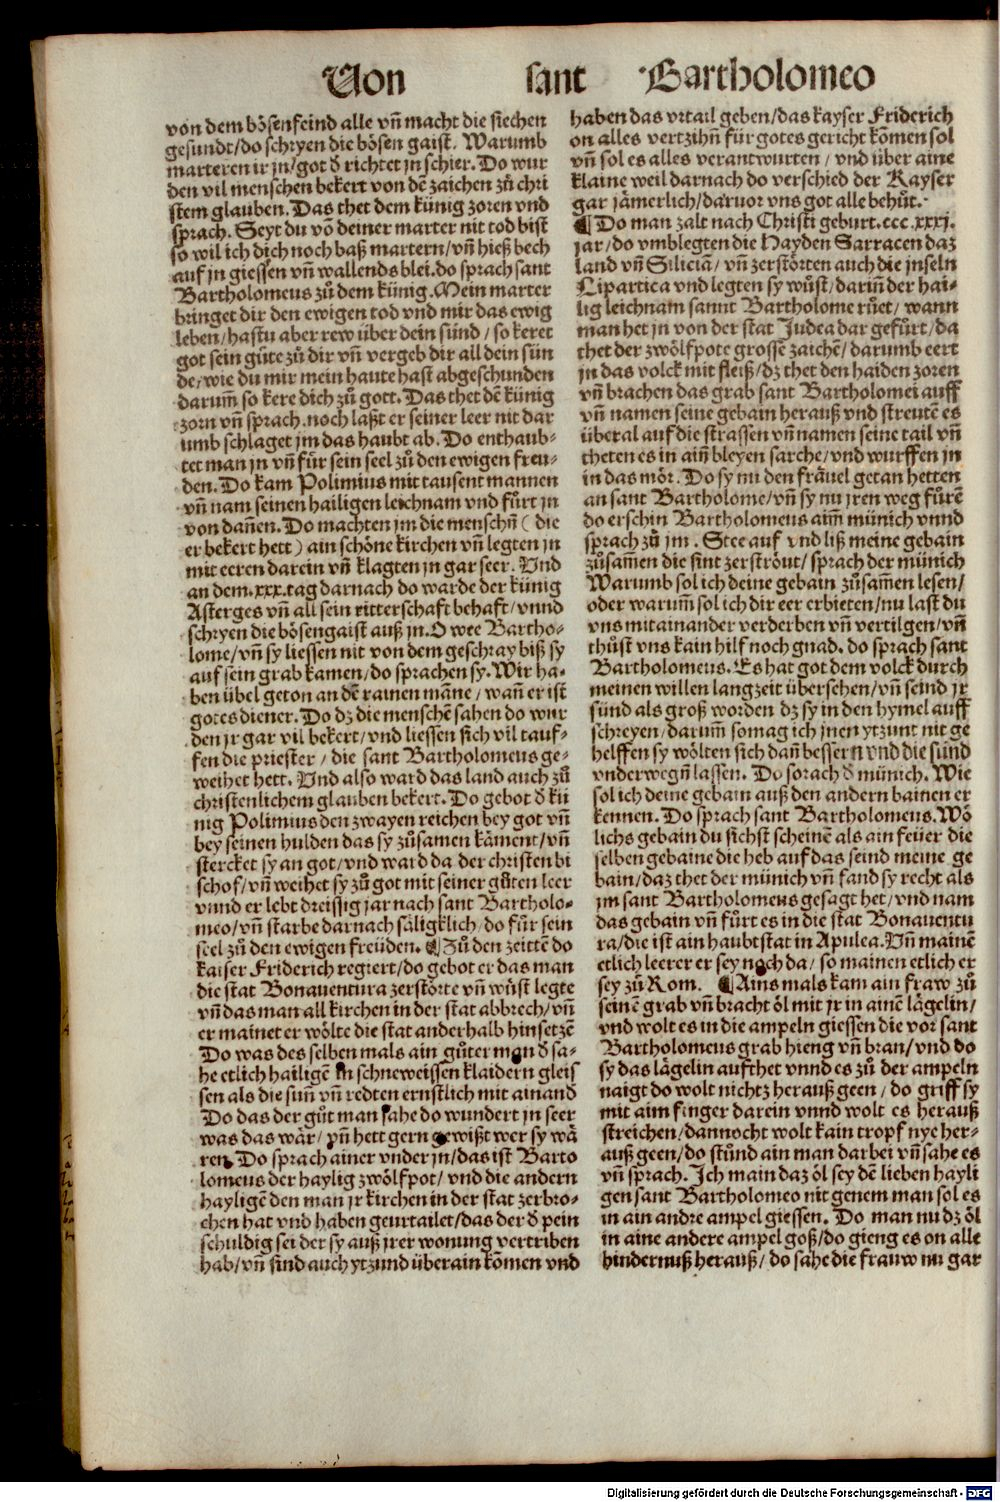 Von sant Bartholomeo
von dem bösenfeind alle vnn̄ macht die siechen
gesundt/do schryen die bösen gaist. Warumb
marteren ir jn/got d̄ richtet jn schier. Do wur
den vil menschen bekert von dē zaichen zů chri
stem glauben. Das thet dem künig zoren vnd
sprach. Seyt du vō deiner marter nit tod bist
so wil ich dich noch baß martern/vn̄ hieß bech
auf jn giessen vn̄ wallends blei. do sprach sant
Bartholomeus zů dem künig. Mein marter
bringet dir den ewigen tod vnd mir das ewig
leben/hastu aber rew über dein sünd/so keret
got sein güte zů dir vn̄ vergeb dir all dein sün
de/wie du mir mein haute hast abgeschunden
darum̄ so kere dich zů gott. Das thet dē künig
zorn vn̄ sprach. noch laßt er seiner leer nit dar
umb schlaget jm das haubt ab. Do enthaub-
tet man jn vn̄ fůr sein seel zů den ewigen freu-
den. Do kam Polimius mit tausent mannen
vn̄ nam seinen hailigen leichnam vnd fůrt jn
von dan̄en. Do machten jm die menschn̄ (die
er bekert hett) ain schöne kirchen vn̄ legten jn
mit eeren darein vn̄ klagten jn gar seer. Vnd
an dem .xxx. tag darnach do warde der künig
Asterges vn̄ all sein ritterschaft behaft/vnnd
schryen die bösengaist auß jn. O wee Bartho-
lome/vn̄ sy liessen nit von dem geschray biß sy
auf sein grab kamen/do sprachen sy. Wir ha-
ben übel geton an dē rainen māne/wan̄ er ist
gotes diener. Do dz die menschē sahen do wur
den jr gar vil bekert/vnd liessen sich vil tauf-
fen die priester/die sant Bartholomeus ge-
weihet hett. Vnd also ward das land auch zů
christenlichem glauben bekert. Do gebot d̄ kü
nig Polimius den zwayen reichen bey got vn̄
bey seinen hulden das sy zůsamen kāment/vn̄
stercket sy an got/vnd ward da der christen bi
schof/vn̄ weihet sy zů got mit seiner gůten leer
vnnd er lebt dreissig jar nach sant Bartholo-
meo/vn̄ starbe darnach säligklich/do fůr sein
seel zů den ewigen freüden. ¶ Zů den zeittē do
kaiser Friderich regiert/do gebot er das man
die stat Bonauentura zerstörte vn̄ wüst legte
vn̄ das man all kirchen in der stat abbrech/vn̄
er mainet er wölte die stat anderhalb hinsetzē
Do was des selben mals ain gůter man d̄ sa-
he etlich hailigē in schneweissen klaidern gleis
sen als die sun̄ vn̄ redten ernstlich mit ainand̄
Do das der gůt man sahe do wundert jn seer
was das wär/vn̄ hett gern gewißt wer sy wā
ren. Do sprach ainer vnder jn/das ist Barto
lomeus der haylig zwölfpot/vnd die andern
hayligē den man jr kirchen in der stat zerbro-
chen hat vnd haben geurtailet/das der d̄ pein
schuldig sei der sy auß jrer wonung vertriben
hab/vn̄ sind auch ytzund überain kōmen vnd
haben das vrtail geben/das kayser Friderich
on alles vertzihn̄ für gotes gericht kōmen sol
vn̄ sol es alles verantwurten/vnd über aine
klaine weil darnach do verschied der Kayser
gar jämerlich/daruor vns got alle behüt.
¶ Do man zalt nach Christi geburt .ccc.xxxj.
jar/do vmblegten die Hayden Sarracen daz
land vn̄ Siliciā/vn̄ zerstörten auch die jnseln
Lipartica vnd legten sy wüst/darin̄ der hai-
lig leichnam sannt Bartholome růet/wann
man het jn von der stat Judea dar gefürt/da
thet der zwölfpote grossē zaichē/darumb eert
jn das volck mit fleiß/dz thet den haiden zoren
vn̄ brachen das grab sant Bartholomei auff
vn̄ namen seine gebain herauß vnd streutē es
überal auf die strassen vn̄ namen seine tail vn̄
theten es in ain̄ bleyen sarche/vnd wurffen jn
in das mör. Do sy nu den fräuel getan hetten
an sant Bartholome/vn̄ sy nu jren weg fürē
do erschin Bartholomeus aim̄ münich vnnd
sprach zů jm. Stee auf vnd liß meine gebain
zůsam̄en die sint zerströut/sprach der münich
Warumb sol ich deine gebain zůsam̄en lesen/
oder warum̄ sol ich dir eer erbieten/nu last du
vns mitainander verderben vn̄ vertilgen/vn̄
thůst vns kain hilf noch gnad. do sprach sant
Bartholomeus. Es hat got dem volck durch
meinen willen langzeit übersehen/vn̄ seind jr
sünd als groß worden dz sy in den hymel auff
schreyen/darum̄ so mag ich jnen ytzunt nit ge
helffen sy wölten sich dan̄ bessern vnd die sünd
vnderwegn̄ lassen. Do sprach d̄ münich. Wie
sol ich deine gebain auß den andern bainen er
kennen. Do sprach sant Bartholomeus. Wō
lichs gebain du sichst scheinē als ain feüer die
selben gebaine die heb auf das seind meine ge
bain/daz thet der münich vn̄ fand sy recht als
jm sant Bartholomeus gesagt het/vnd nam
das gebain vn̄ fůrt es in die stat Bonauentu
ra/die ist ain haubtstat in Apulea. Vn̄ mainē
etlich leerer er sey noch da/so mainen etlich er
sey zů Rom. ¶ Ains mals kam ain fraw zů
seinē grab vn̄ bracht öl mit jr in ainē lägelin/
vnd wolt es in die ampeln giessen die vor sant
Bartholomeus grab hieng vn̄ bran/vnd do
sy das lägelin aufthet vnnd es zů der ampeln
naigt do wolt nichtz herauß geen/do griff sy
mit aim finger darein vnnd wolt es herauß
streichen/dannocht wolt kain tropf nye her-
auß geen/do stůnd ain man darbei vn̄ sahe es
vn̄ sprach. Ich main daz öl sey dē lieben hayli
gen sant Bartholomeo nit genem man sol es
in ain andre ampel giessen. Do man nu dz öl
in aine andere ampel goß/do gieng es on alle
hindernuß herauß/do sahe die frauw nu gar
Digitalisierung gefördert durch die Deutsche Forschungsgemeinschaft - DFG